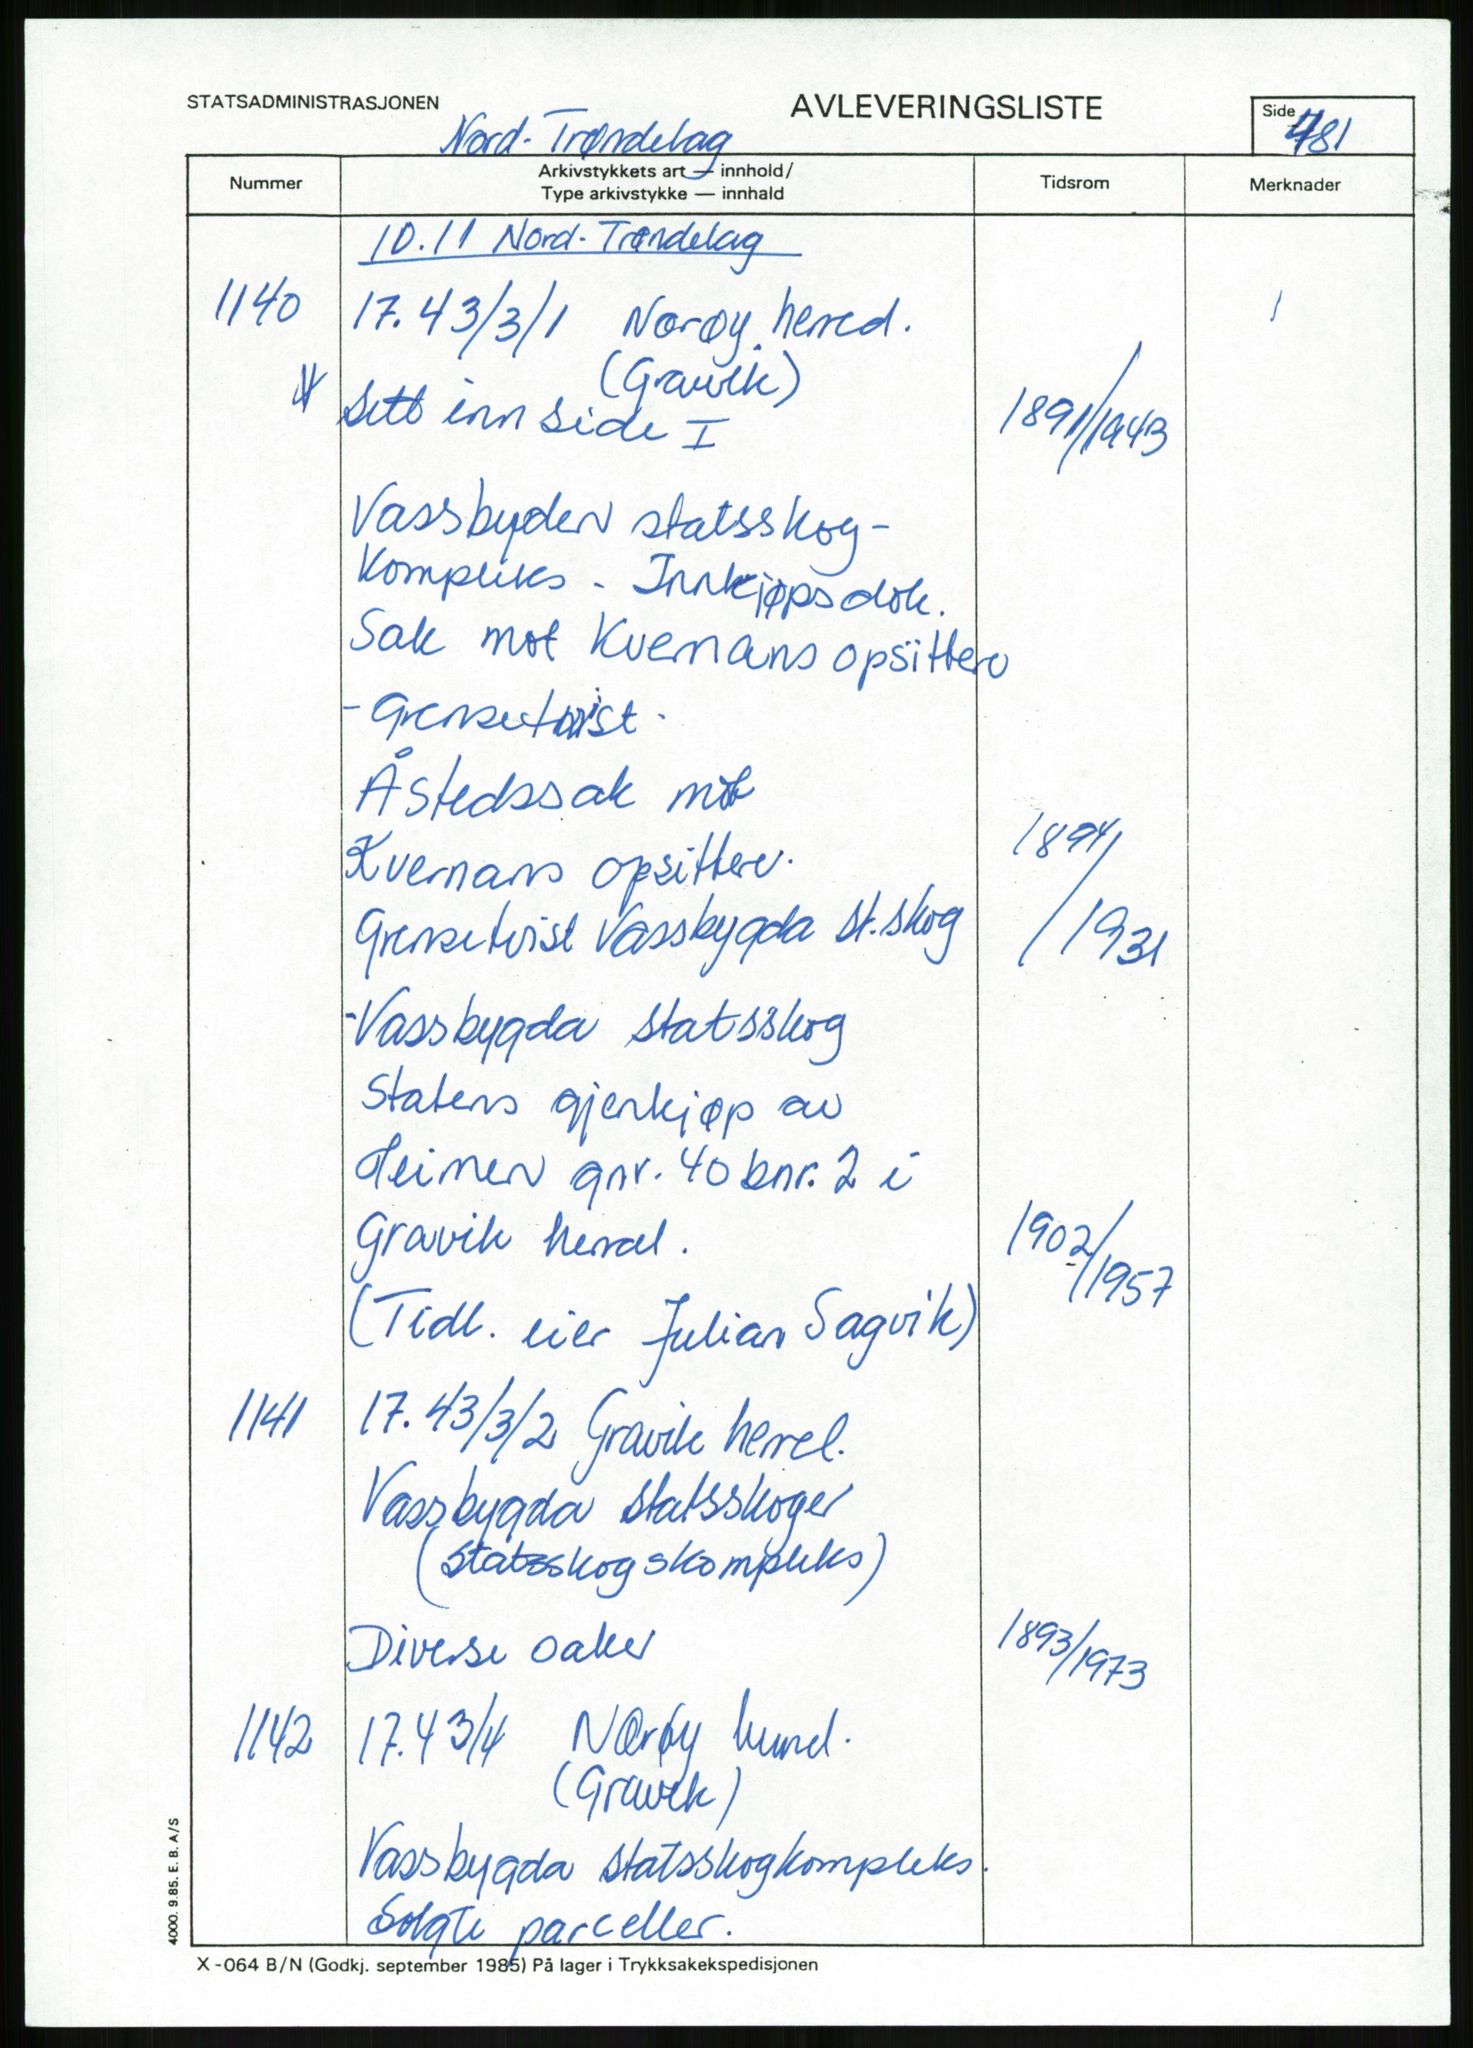 STATSADMINISTRASJONEN
AVLEVERINGSLISTE
Side
481
Nord-Trøndelag
Nummer
Arkivstykkets art — innhold/
Type arkivstykke — innhald
Tidsrom
Merknader
10.11 Nord-Trøndelag
1140 17.43/3/1 Nærøy herred.
(Gravik)
Sett inn side I 1891/1943
Vassbygden statsskog-
kompleks - Innkjøpsdok.
Sak mot Kvernans opsittere
- Grensetvist.
Åstedssak mot
Kvernans opsittere. 1894/
Grensetvist Vassbygda st.skog /1931
- Vassbygda statsskog
Statens gjenkjøp av
Heimen gnr. 40 bnr. 2 i
Gravik herred. 1902/1957
(Tidl. eier Julian Sagvik)
1141 17.43/3/2 Gravik herred.
Vassbygda statsskoger
(statsskogskompleks)
Diverse saker 1893/1973
1142 17.43/4 Nærøy herred.
(Gravik)
Vassbygda statsskogkompleks.
Solgte parceller.
4000. 9.85. E. B. A/S
X-064 B/N (Godkj. september 1985) På lager i Trykksakekspedisjonen